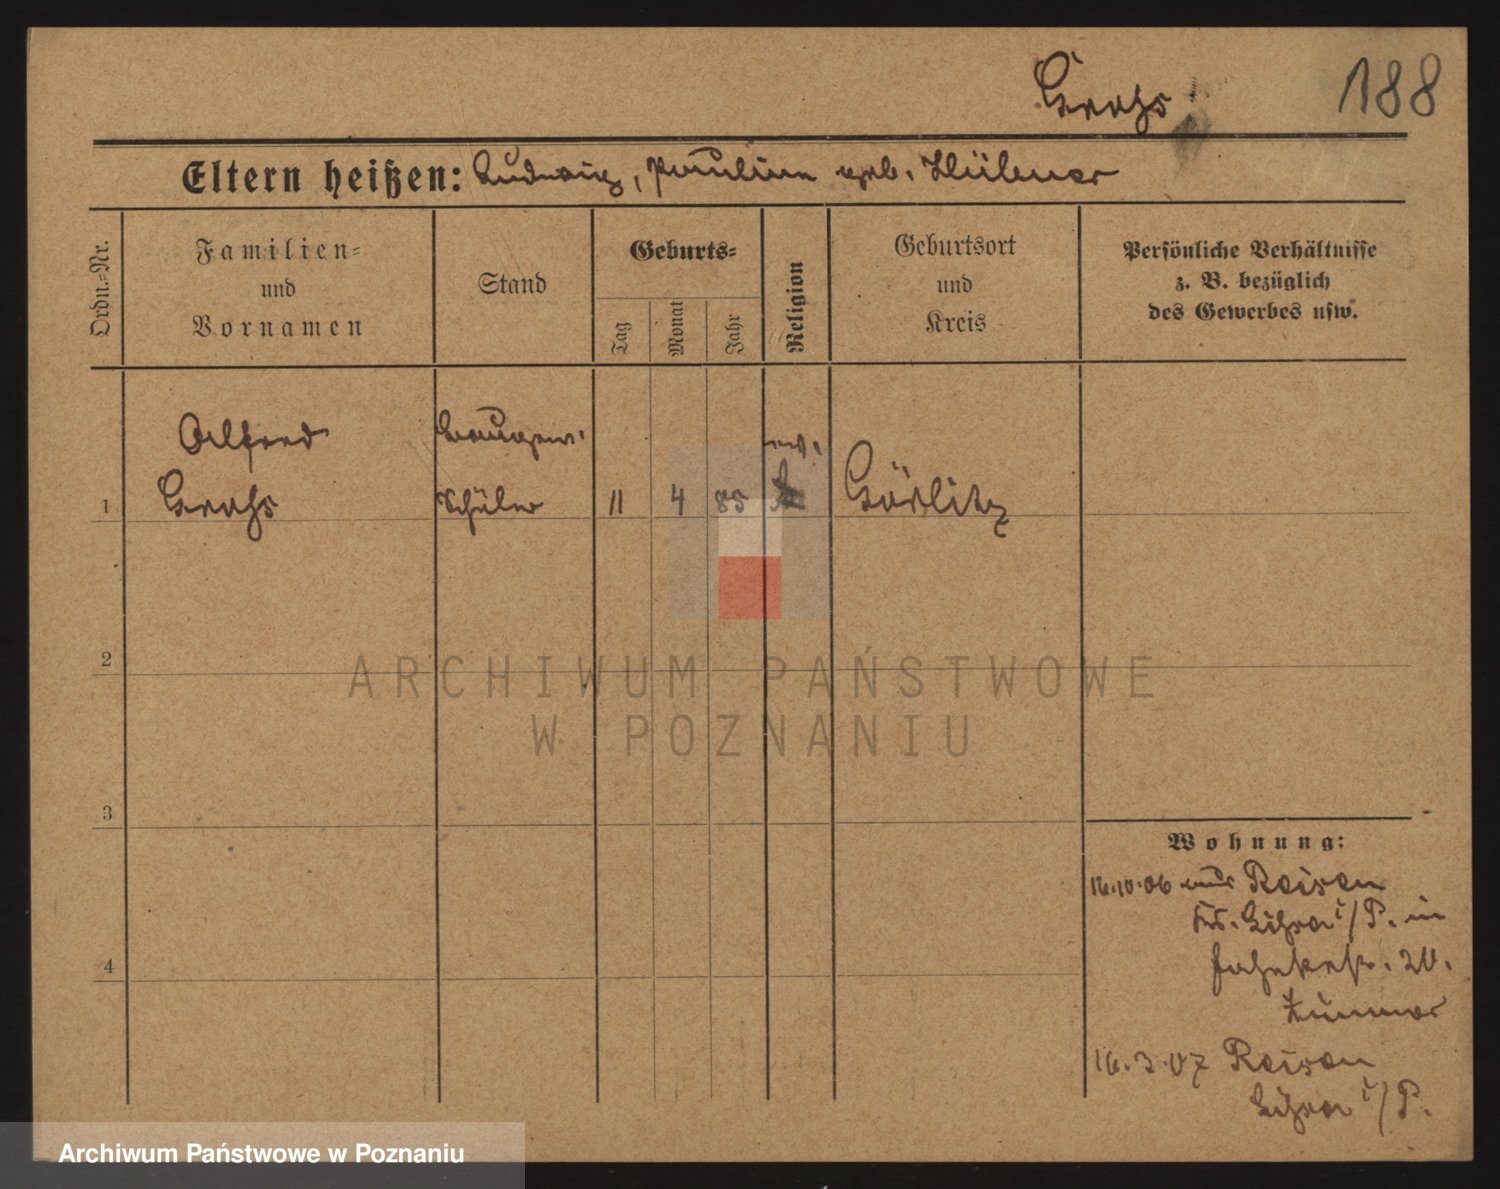 Grahs
188
Eltern heißen: Ludwig, Pauline geb. Hübner
Ordn.-Nr.
Familien-
und
Vornamen
Stand
Geburts-
Tag
Monat
Jahr
Religion
Geburtsort
und
Kreis
Persönliche Verhältnisse
z. B. bezüglich
des Gewerbes usw.
Alfred
Baugew.
ev.
1
Grahs
Schüler
11
4
85
Görlitz
2
ARCHIWUM PAŃSTWOWE
W POZNANIU
3
Wohnung:
16.10.06 aus Reisen
Krs. Lissa i/P. in
20.
4
16.3.07 Reisen
Lissa i/P.
Archiwum Państwowe w Poznaniu